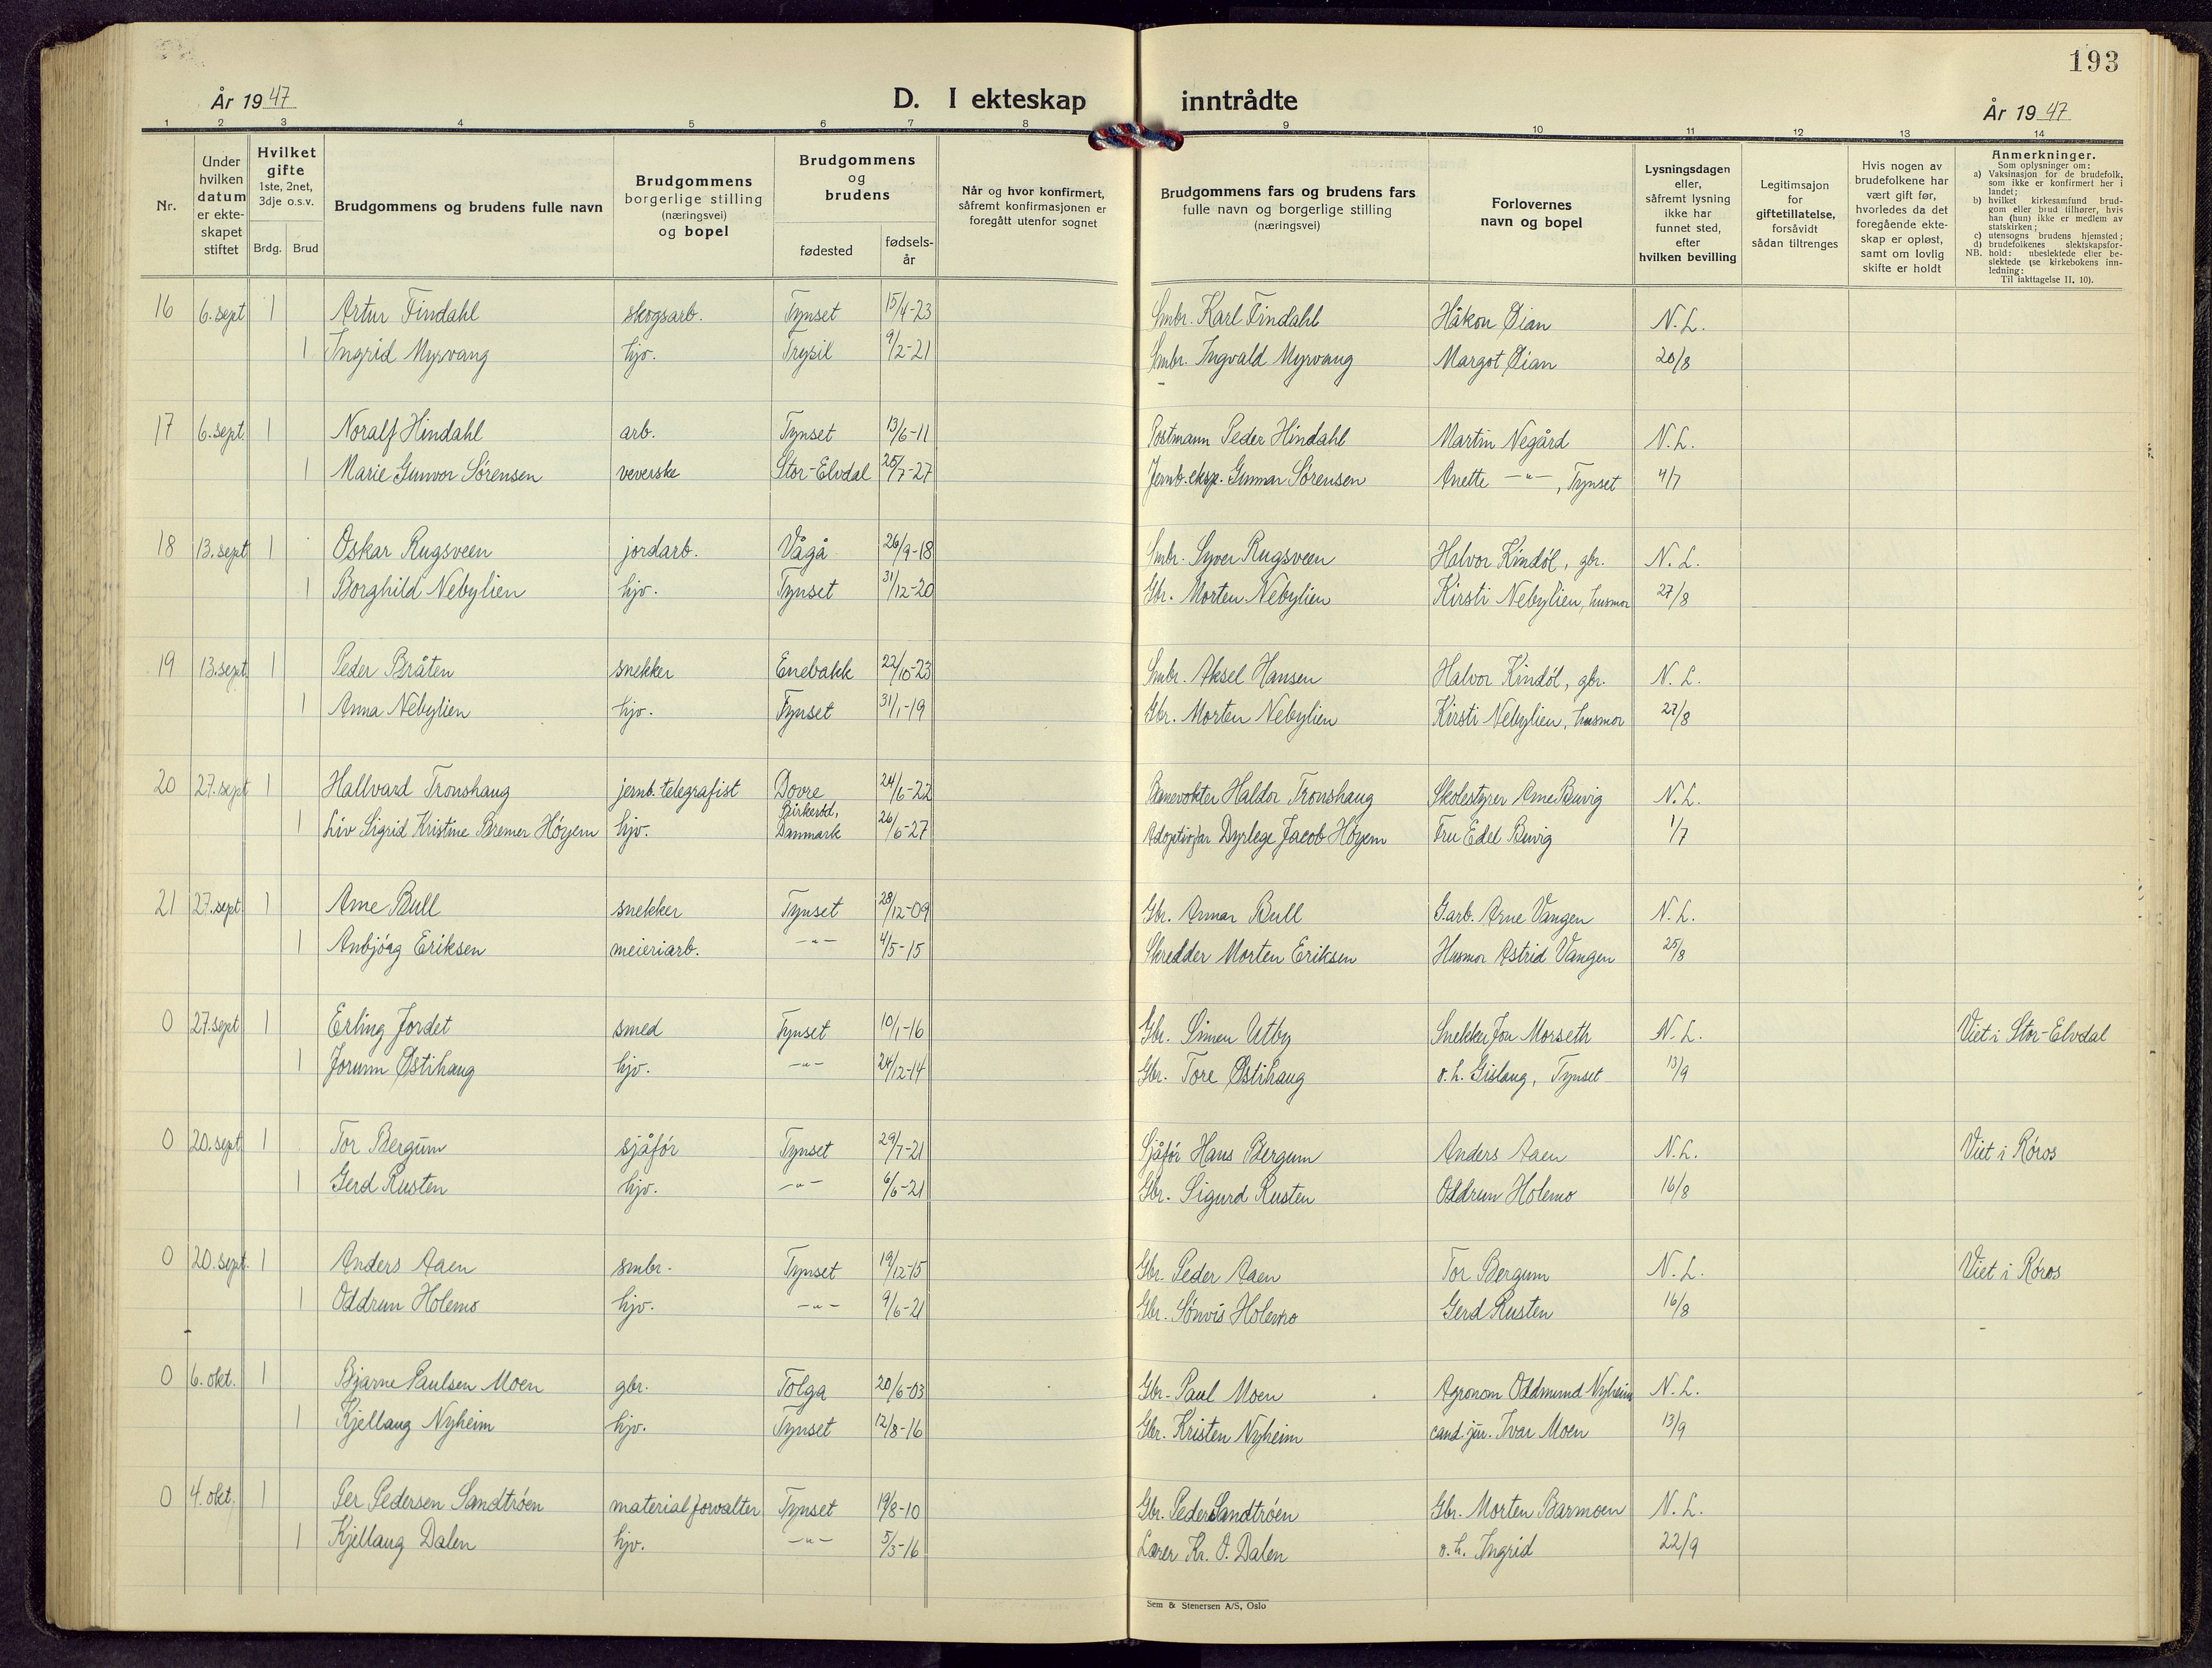 193
År 1947
D. I ekteskap inntrådte
År 1947
1 2 3 4 5 6 7 8 9 10 11 12 13 14
Nr.
Under hvilken datum er ekte-skapet stiftet
Hvilket gifte 1ste, 2net, 3dje o.s.v.
Brdg. Brud
Brudgommens og brudens fulle navn
Brudgommens borgerlige stilling (næringsvei) og bopel
Brudgommens og brudens
fødested fødsels-år
Når og hvor konfirmert, såfremt konfirmasjonen er foregått utenfor sognet
Brudgommens fars og brudens fars fulle navn og borgerlige stilling (næringsvei)
Forlovernes navn og bopel
Lysningsdagen eller, såfremt lysning ikke har funnet sted, efter hvilken bevilling
Legitimsajon for giftetillatelse, forsåvidt sådan tiltrenges
Hvis nogen av brudefolkene har vært gift før, hvorledes da det foregående ekte-skap er opløst, samt om lovlig skifte er holdt
Anmerkninger.
Som oplysninger om:
a) Vaksinasjon for de brudefolk, som ikke er konfirmert her i landet;
b) hvilket kirkesamfund brud-gom eller brud tilhører, hvis han (hun) ikke er medlem av statskirken;
c) utensogns brudens hjemsted;
d) brudefolkenes slektskapsfor-hold: ubeslektede eller be-slektede (se kirkebokens inn-ledning:
NB. Til iakttagelse II, 10).
16 6. sept 1 Artur Findahl skogsarb. Tynset 15/4-23 Smbr. Karl Findahl Håkon Øian N. L.
1 Ingrid Myrvang hjv. Trysil 9/2-21 Smbr. Ingvald Myrvang Margot Øian 20/8
17 6. sept. 1 Noralf Hindahl arb. Tynset 13/6-11 Postmann Peder Hindahl Martin Negård N. L.
1 Marie Gunvor Sørensen veverske Stor-Elvdal 25/7-27 Jernb.eksp. Gunnar Sørensen Anette -"-, Tynset 4/7
18 13. sept 1 Oskar Rugsveen jordarb. Vågå 26/9-18 Smbr. Syver Rugsveen Halvor Kindøl, gbr. N. L.
1 Borghild Nebylien hjv. Tynset 31/12-20 Gbr. Morten Nebylien Kirsti Nebylien, husmor 27/8
19 13. sept. 1 Peder Bråten snekker Enebakk 22/10-23 Smbr. Aksel Hansen Halvor Kindøl, gbr. N. L.
1 Anna Nebylien hjv. Tynset 31/1-19 Gbr. Morten Nebylien Kirsti Nebylien, husmor 27/8
20 27. sept 1 Hallvard Tronshaug jernb. telegrafist Dovre 24/6-22 Banevokter Haldor Tronshaug Skolestyrer Arne Buvig N. L.
1 Liv Sigrid Kristine Bremer Höyem hjv. Birkerød, Danmark 26/6-27 Adoptivfar Dyrlege Jacob Höyem Fru Edel Buvig 1/7
21 27. sept. 1 Arne Bull snekker Tynset 28/12-09 Gbr. Armar Bull G.arb. Arne Vangen N. L.
1 Anbjörg Eriksen meieriarb. -"- 4/5-15 Skredder Morten Eriksen Husmor Astrid Vangen 25/8
0 27. sept 1 Erling Jordet smed Tynset 10/1-16 Gbr. Simen Utby Snekker Jon Morseth N. L. Viet i Stor-Elvdal
1 Jorunn Østihaug hjv. -"- 24/12-14 Gbr. Tore Østihaug o. h. Gislaug, Tynset 13/9
0 20. sept 1 Tor Bergum sjåför Tynset 29/7-21 Sjåför Hans Bergum Anders Aaen N. L. Viet i Röros
1 Gerd Rusten hjv. -"- 6/6-21 Gbr. Sigurd Rusten Oddrun Holemo 16/8
0 20. sept. 1 Anders Aaen smbr. Tynset 19/12-15 Gbr. Peder Aaen Tor Bergum N. L. Viet i Röros
1 Oddrun Holemo hjv. -"- 9/6-21 Gbr. Sönvis Holemo Gerd Rusten 16/8
0 6. okt. 1 Bjarne Paulsen Moen gbr. Tolga 20/6-03 Gbr. Paul Moen Agronom Oddmund Nyheim N. L.
1 Kjellaug Nyheim hjv. Tynset 12/8-16 Gbr. Kristen Nyheim cand. jur. Ivar Moen 13/9
0 4. okt. 1 Per Pedersen Sandtröen materialforvalter Tynset 19/8-10 Gbr. Peder Sandtröen Gbr. Morten Barmoen N. L.
1 Kjellaug Dalen hjv. -"- 5/3-16 Lærer Kr. O. Dalen o. h. Ingrid 22/9
Sem & Stenersen A/S, Oslo